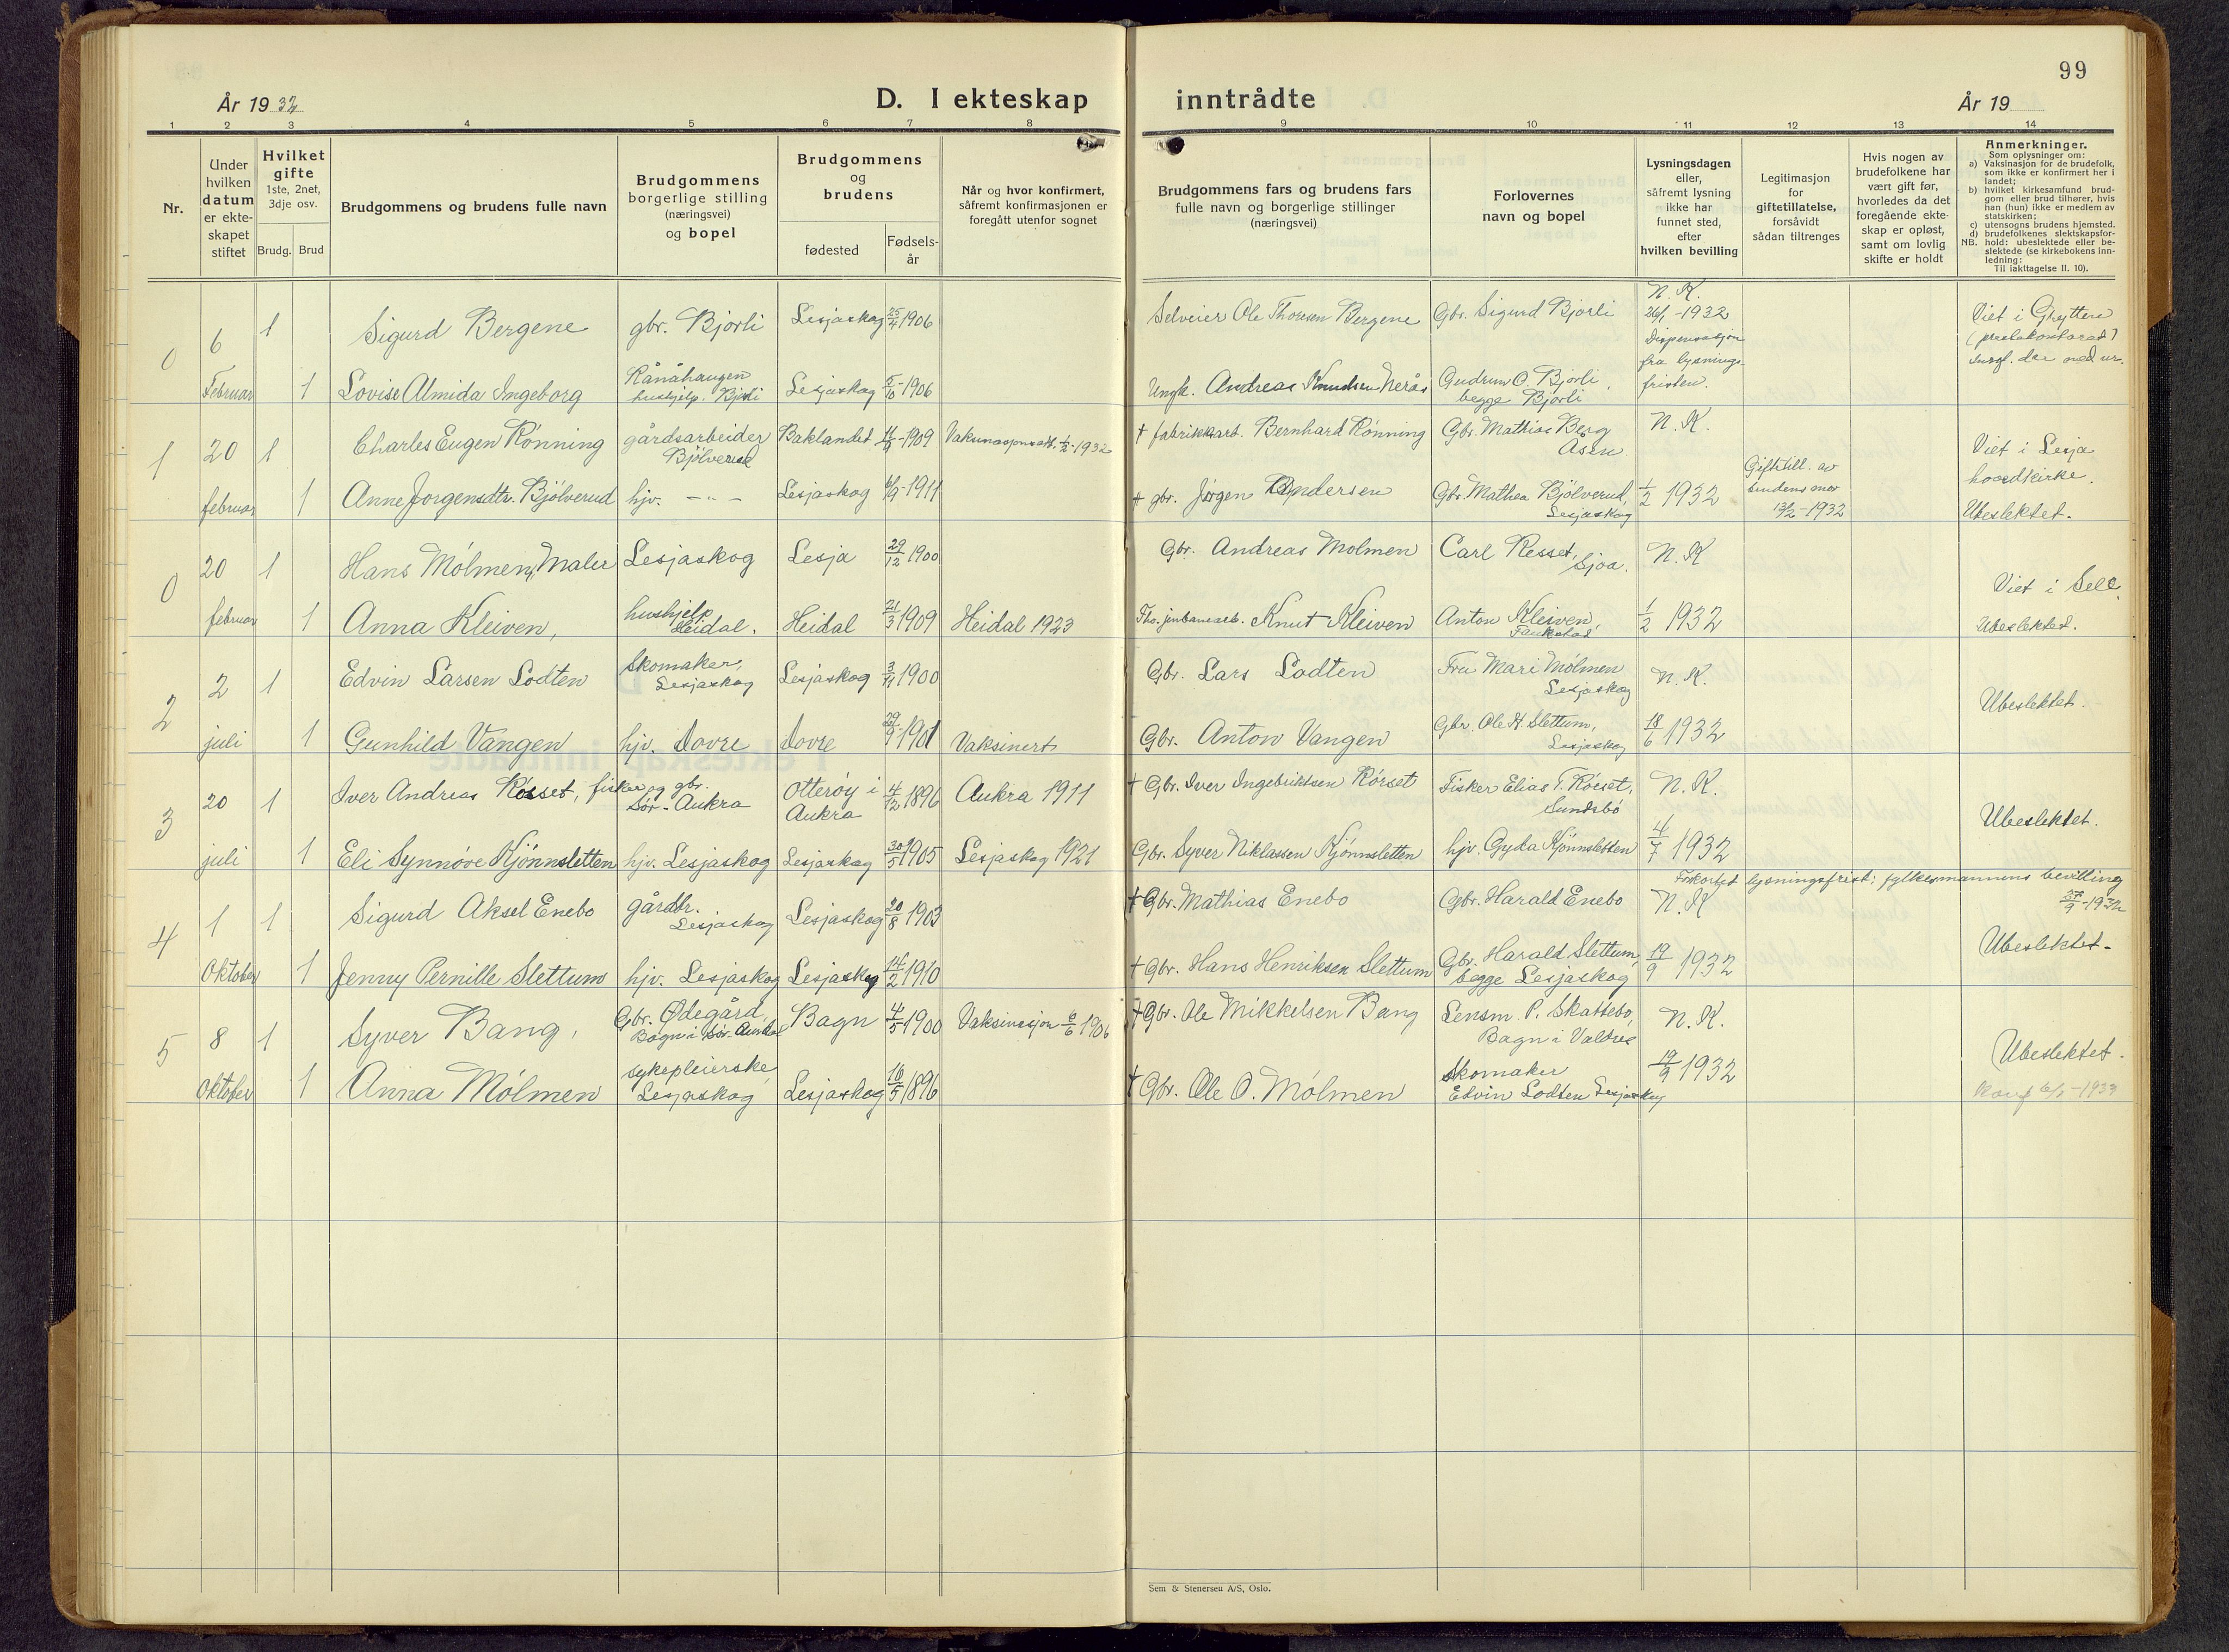 99
År 1932
D. I ekteskap inntrådte
År 19
1 2 3 4 5 6 7 8 9 10 11 12 13 14
Nr.
Under hvilken datum er ekte-skapet stiftet
Hvilket gifte
1ste, 2net, 3dje osv.
Brudg. Brud
Brudgommens og brudens fulle navn
Brudgommens borgerlige stilling (næringsvei) og bopel
Brudgommens og brudens
fødested
Fødsels-år
Når og hvor konfirmert, såfremt konfirmasjonen er foregått utenfor sognet
Brudgommens fars og brudens fars fulle navn og borgerlige stillinger (næringsvei)
Forlovernes navn og bopel
Lysningsdagen eller, såfremt lysning ikke har funnet sted, efter hvilken bevilling
Legitimasjon for giftetillatelse, forsåvidt sådan tiltrenges
Hvis nogen av brudefolkene har vært gift før, hvorledes da det foregående ekte-skap er opløst, samt om lovlig skifte er holdt
Anmerkninger.
Som oplysninger om:
a) Vaksinasjon for de brudefolk, som ikke er konfirmert her i landet;
b) hvilket kirkesamfund brud-gom eller brud tilhører, hvis han (hun) ikke er medlem av statskirken;
c) utensogns brudens hjemsted.
d) brudefolkenes slektskapsfor-
NB. hold: ubeslektede eller be-slektede (se kirkebokens inn-ledning:
Til iakttagelse II. 10).
0 6 1 Sigurd Bergene gbr. Bjorli Lesjaskog 25/4 1906 Selveier Ole Thoresen Bergene Gbr. Sigurd Bjorli N. K. 26/1 - 1932 Viet i
Dispensasjon fra lysnings-fristen.
Februar 1 Lovise Almida Ingeborg Rånåhaugen hushjelp. Bjorli Lesjaskog 5/10 - 1906 Ungk. Andreas Knudsen Nerås Gudrun O. Bjorli, begge Bjorli
1 20 1 Charles Eugen Rønning gårdsarbeider Bjølverud Baklandet 1909 † fabrikkarb. Bernhard Rønning Gbr. Mathias Berg Åsen N. K. Viet i Lesja hovedkirke.
februar 1 Anne Jørgensdtr. Bjølverud hjv. - " - Lesjaskog 1911 † gbr. Jørgen Andersen Gbr. Mathea Bjølverud, Lesjaskog 1/2 1932 Giftetill. av brudens mor 13/2 - 1932 Ubeslektet.
0 20 1 Hans Mølmen, Maler Lesjaskog Lesja 29/12 1900 Gbr. Andreas Mølmen Carl Resset, Sjoa. N. K Viet i Sell
februar 1 Anna Kleiven, hushjelp Heidal. Heidal 21/3 1909 Heidal 1923 Knut Kleiven Anton Kleiven, Faukstad 1/2 1932 Ubeslektet.
2 2 1 Edvin Larsen Lodten Skomaker, Lesjaskog Lesjaskog 3/11 1900 Gbr. Lars Lodten Fru Mari Mølmen Lesjaskog N. K. Ubeslektet.
juli 1 Gunhild Vangen hjv. Dovre Dovre 29/9 1901 Vaksinert Gbr. Anton Vangen Gbr. Ole H. Slettum, Lesjaskog 18/6 1932
3 20 1 Iver Andreas Rösset, fisker og gbr. Sør-Aukra Otterøy i Aukra 4/12 1896 Aukra 1911 † Gbr. Iver Ingebriktsen Rörset Fisker Elias T. Röeset, Sundsbø N. K. Ubeslektet.
juli 1 Eli Synnøve Kjønnsletten hjv. Lesjaskog Lesjaskog 30/5 1905 Lesjaskog 1921 Gbr. Syver Niklassen Kjønnsletten hjv. Gyda Kjønnsletten 4/7 1932
Forkortet lysningsfrist: fylkesmannens bevilling 27/9 - 1932
4 1 1 Sigurd Aksel Enebo gårdbr. Lesjaskog Lesjaskog 20/8 1903 † Gbr. Mathias Enebo Gbr. Harald Enebo N. K Ubeslektet.
Oktober 1 Jenny Pernille Slettum hjv. Lesjaskog Lesjaskog 14/2 1910 † Gbr. Hans Henriksen Slettum Gbr. Harald Slettum, begge Lesjaskog 19/9 1932
5 8 1 Syver Bang, Gbr. Ødegård, Bagn i Sør-Aurdal Bagn 4/5 1900 Vaksinasjon 6/6 1906 † Gbr. Ole Mikkelsen Bang Lensm. P. Skattebo, Bagn i Valdres N. K. Ubeslektet.
Oktober 1 Anna Mølmen sykepleierske Lesjaskog Lesjaskog 16/5 1896 † Gbr. Ole O. Mølmen Skomaker Edvin Lodten Lesjaskog 19/9 1932
Sem & Stenersen A/S, Oslo.